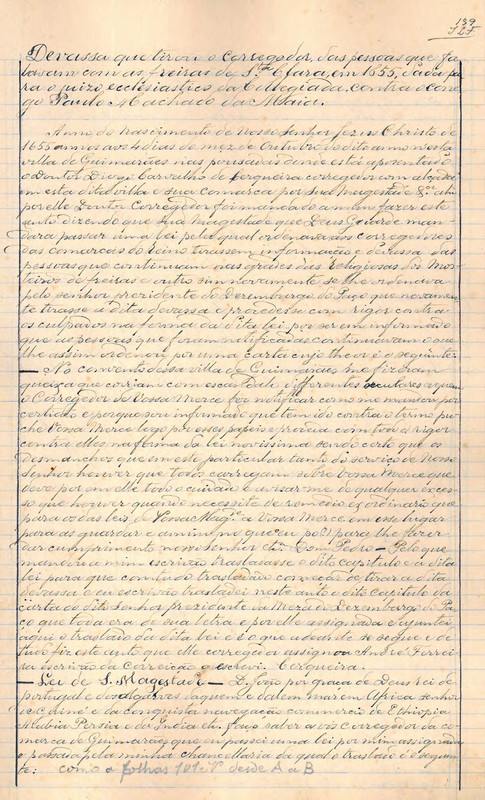 139
JLF
Devassa que tirou o corregedor, das pessoas que fa-
lavam com as freiras de Sta. Clara, em 1655, dada pa-
ra o juizo ecclesiastico da Collegiada, contra o cone-
go Paulo Machado da Maia.
Anno do nascimento de Nosso Senhor Jezus Christo de
1655 annos aos 4 dias do mez de Outubro do dito anno nesta
villa de Guimarães nas pousadas donde está aposentado
o Doutor Diogo Carvalho de Cerqueira corregedor com alçada
em esta dita villa e sua comarca por Sua Magestade &ª ahi
por elle Doutor Corregedor foi mandado a mim fazer este
auto dizendo que Sua Magestade que Deus Guarde man-
dara passar uma lei pela qual ordenava aos corregedores
das comarcas do reino tirassem informação e devassa das
pessoas que continuam nas grades das religiosas dos Mos-
teiros de freiras e outro sim novamente se lhe ordenava
pelo senhor prezidente do Dezembargo do Paço que novamen-
te tirasse a dita devassa e procedesse com rigor contra
os culpados na forma da dita lei por ser em informado
que as pessoas que foram notificadas continuavam o que
lhe assim ordenou por uma carta cujo theor é o seguinte:
— No convento dessa villa de Guimarães me fizeram
queixa que corriam com escandalo differentes seculares a quem
o Corregedor de Vossa Merce foi notificar como me mandou por
certidão e porque sou informado que tem ido contra o termo
Vossa Merce logo por esses papeis e proceda com todo o rigor
contra elles na forma da lei novissima sendo certo que os
desmanchos que em este particular tanto do serviço de Nosso
Senhor houver que todos carregam sobre Vossa Merce que
deve por em elle todo o cuidado e avisar-me de qualquer exces-
so que houver quando necessite de remedio extraordinario que
para os das leis de Vossa Mag. a Vossa Merce em esse lugar
para as guardar e a mim no que eu para lhe fazer
dar cumprimento novo senhor etc. Dom Pedro — Pelo que
mandou a mim escrivão trasladasse o dito capitulo e a dita
lei para que com tudo trasladado começar de tirar a dita
devassa e eu escrivão trasladei neste auto o dito capitulo da
carta do dito Senhor prezidente da Meza do Dezembargo do Pa-
ço que toda era de sua letra e por elle assignada e ajuntei
aqui o traslado da dita lei e é o que adeante se segue e de
tudo fiz este auto que elle corregedor assignou André Ferrei-
ra escrivão da Correição o escrevi. Cerqueira.
— Lei de S. Magestade — D. João por graça de Deus rei de
portugal e dos algarves daquem e dalem mar em Africa senhor
de Guiné e da conquista navegação commercio de Ethiopia
Arabia Persia e da India etc. faço saber a vós corregedor da co-
marca de Guimarães que eu passei uma lei por mim assignada
e passada pela minha chancellaria da qual o traslado é o seguin-
te: como a folhas 101-Vº desde A a B